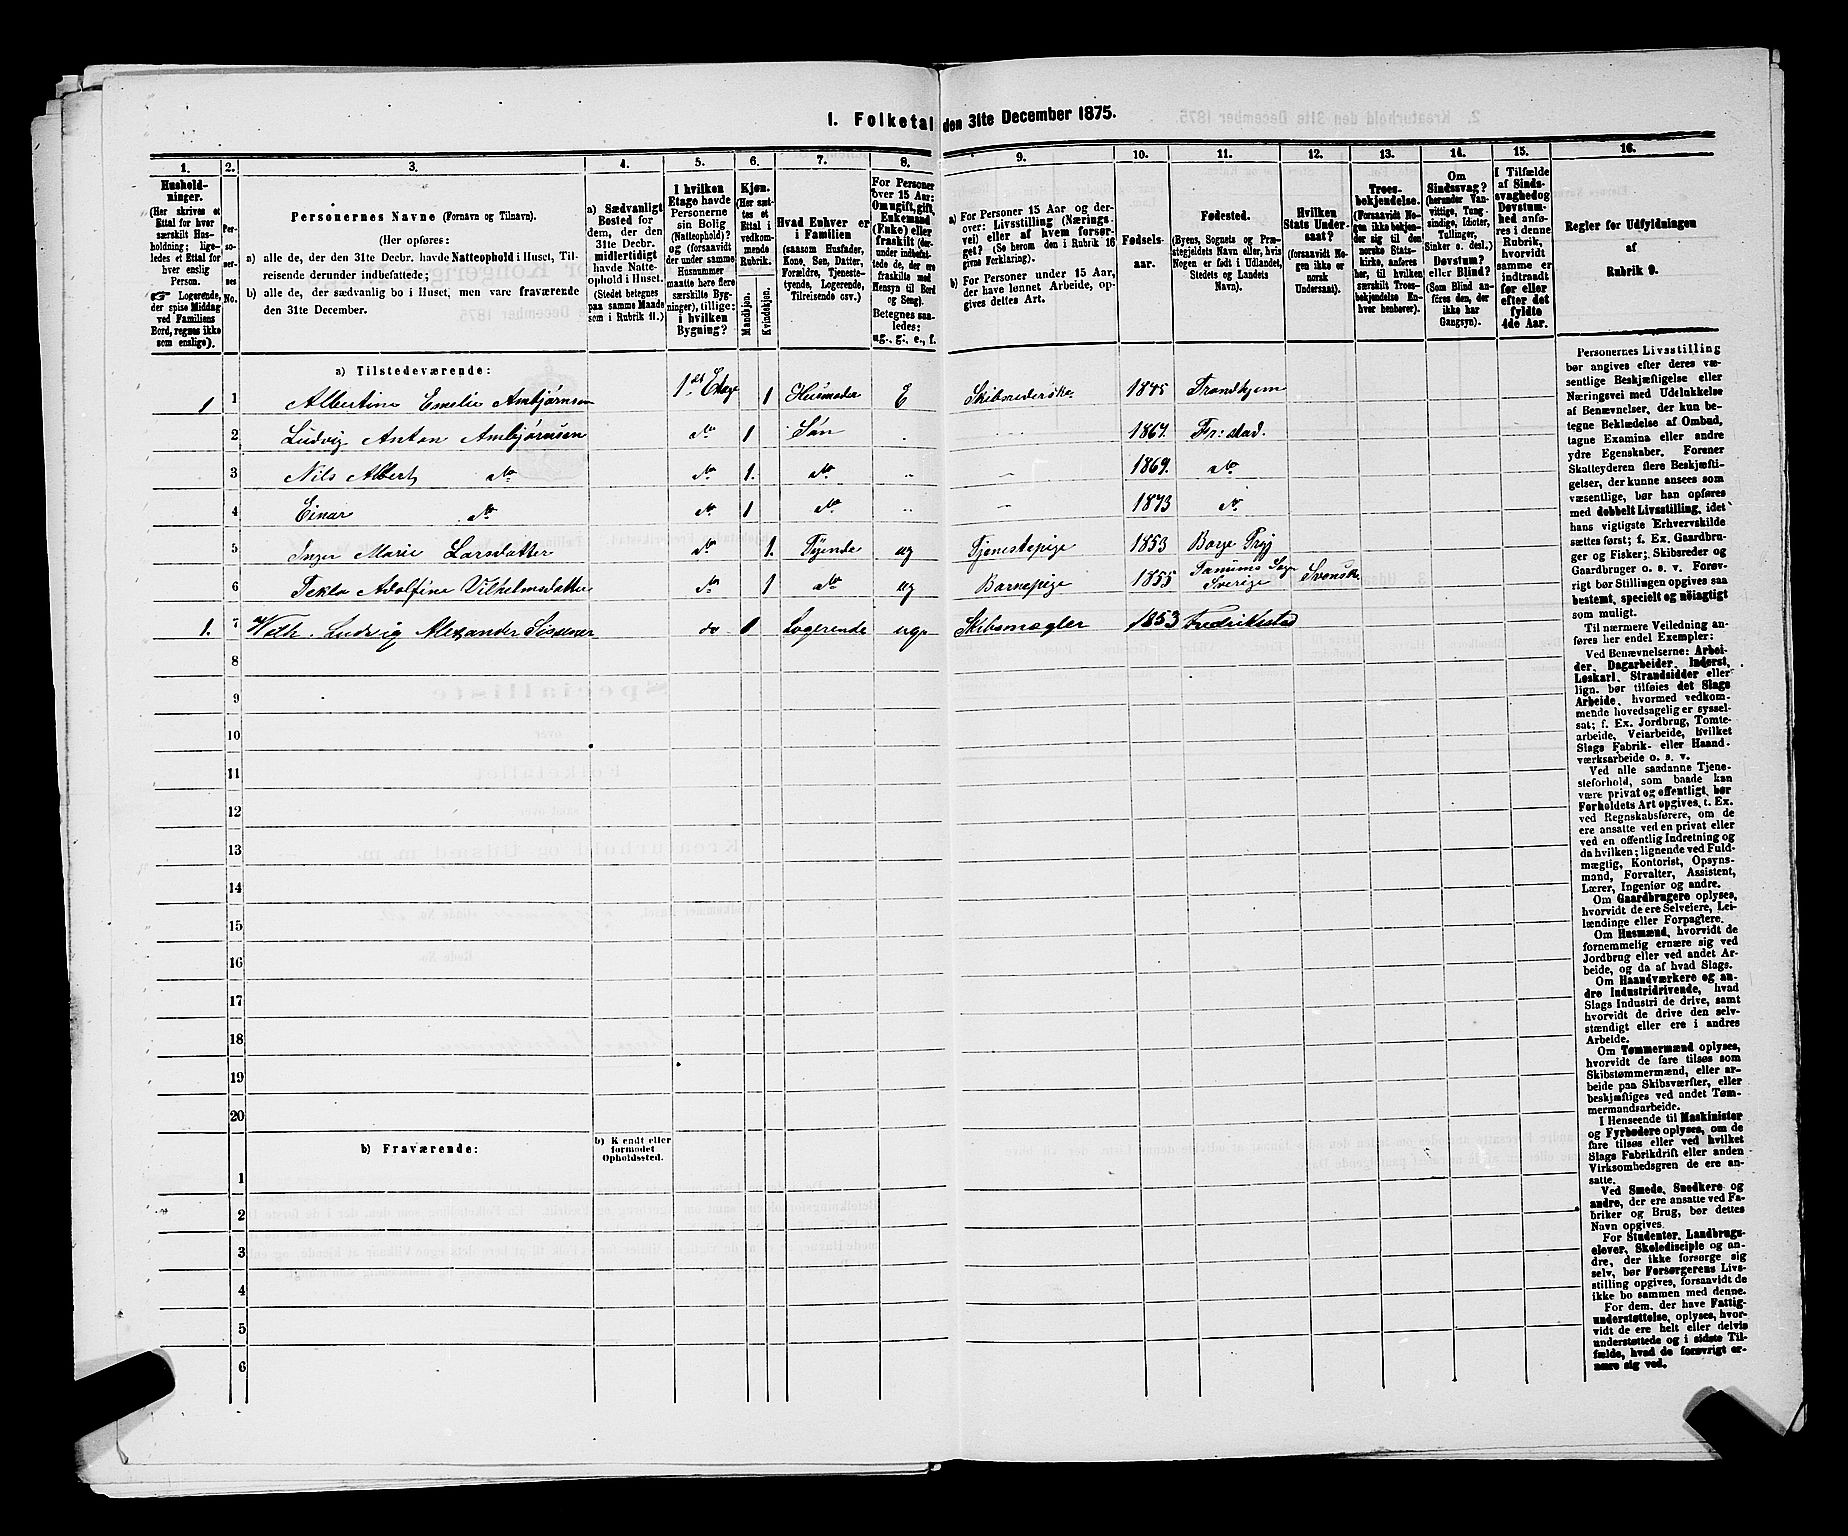 1. Folketal den 31te December 1875.
1. 2. 3. 4. 5. 6. 7. 8. 9. 10. 11. 12. 13. 14. 15. 16.
Hushold-
ninger.
(Her skrives et
Ettal for hver
særskilt Hus-
holdning; lige-
ledes et Ettal for
hver enslig
Person.
☞ Logerende,
der spise Middag
ved Familiens
Bord, regnes ikke
som enslige).
Per-
so-
ner-
nes
No.
Personernes Navne (Fornavn og Tilnavn).
(Her opføres:
a) alle de, der den 31te Decbr. havde Natteophold i Huset, Til-
reisende derunder indbefattede;
b) alle de, der sædvanlig bo i Huset, men vare fraværende
den 31te December.
a) Sædvanligt
Bosted for
dem, der den
31te Decbr.
midlertidigt
havde Natte-
ophold i Huset.
(Stedet betegnes
paa samme Maade
som i Rubrik 11.)
I hvilken
Etage havde
Personerne
sin Bolig
(Natteophold)?
og (forsaavidt
der under samme
Husnummer
maatte høre flere
særskilte Byg-
ninger), tillige:
i hvilken
Bygning?
Kjøn.
(Her sæt-
tes et
Ettal i
vedkom-
mende
Rubrik.
Mandkjøn.
Kvindekjøn.
Hvad Enhver er
i Familien
(saasom Husfader,
Kone, Søn, Datter,
Forældre, Tjeneste-
tyende, Logerende,
Tilreisende osv.)
For Personer
over 15 Aar:
Om ugift, gift,
Enkemand
(Enke) eller
fraskilt (der-
under indbefat-
tede de, der ere
fraskilte med
Hensyn til Bord
og Seng).
Betegnes saa-
ledes:
ug., g., e., f.
a) For Personer 15 Aar og der-
over: Livsstilling (Nærings-
vei) eller af hvem forsør-
get? (Se herom den i Rubrik 16
givne Forklaring).
b) For Personer under 15 Aar,
der have lønnet Arbeide, op-
gives dettes Art.
Fødsels-
aar.
Fødested.
(Byens, Sognets og Præ-
stegjeldets Navn eller, hvis
Nogen er født i Udlandet,
Stedets og Landets
Navn).
Hvilken
Stats Under-
saat?
(Forsaavidt No-
gen ikke er
norsk
Undersaat).
Troes-
bekjendelse.
(Forsaavidt No-
gen ikke bekjen-
der sig til den
norske Stats-
kirke, anføres
her, til hvilken
særskilt Troes-
bekjendelse En-
hver henhører).
Om
Sindssvag?
(herunder Van-
vittige, Tung-
sindige, Idioter,
Tullinger,
Sinker o. desl.)
Døvstum?
eller Blind?
(Som Blind an-
føres den, der
ikke har
Gangsyn).
I Tilfælde
af Sinds-
svaghed og
Døvstum-
hed anfø-
res i denne
Rubrik,
hvorvidt
samme er
indtraadt
før eller
efter det
fyldte
4de Aar.
Regler for Udfyldningen
af
Rubrik 9.
a) Tilstedeværende:
1 1 Albertine Emelie Ambjørnsen 1ste Etage 1 Husmoder E 1845 Trondhjem
2 Ludvig Anton Ambjørnsen do 1 Søn 1867. Fr:stad.
3 Nils Albert do do 1. do 1869. do
4 Einar do do 1 do 1873 do
5 Inger Marie Larsdatter do 1. Tyende ug Tjenestepige 1853 Borge
6 Tekla Adolfine Vilhelmsdatter do 1 do ug Barnepige 1855 Tanums Sogn Sverige Svensk.
1. 7 Ludvig Alexander do 1 Logerende ug. Skibsmægler 1853 Fredriksstad
8
9
10
11
12
13
14
15
16
17
18
19
20
b) Fraværende:
b) Kjendt eller
formodet
Opholdssted.
1
2
3
4
5
6
Personernes Livsstilling
bør angives efter deres væ-
sentlige Beskjæftigelse eller
Næringsvei med Udelukkelse
af Benævnelser, der kun be-
tegne Beklædelse af Ombud,
tagne Examina eller andre
ydre Egenskaber. Forener
Skatteyderen flere Beskjæfti-
gelser, der kunne ansees som
væsentlige, bør han opføres
med dobbelt Livsstilling, idet
hans vigtigste Erhvervskilde
sættes først; f. Ex. Gaardbru-
ger og Fisker; Skibsreder og
Gaardbruger o. s. v. Forøv-
rigt bør Stillingen opgives saa
bestemt, specielt og nøiagtigt
som muligt.
Til nærmere Veiledning an-
føres her endel Exempler:
Ved Benævnelserne: Arbei-
der, Dagarbeider, Inderst,
Løskarl, Strandsidder eller
lign. bør tilføies det Slags
Arbeide, hvormed vedkom-
mende hovedsagelig er syssel-
sat; f. Ex. Jordbrug, Tomte-
arbeide, Veiarbeide, hvilket
Slags Fabrik- eller Haand-
værksarbeide o. s. v.
Ved alle saadanne Tjene-
steforhold, som baade kan
være privat og offentligt, bør
Forholdets Art opgives, t. Ex.
ved Regnskabsførere, om de
ere ansatte ved en privat eller
ved en offentlig Indretning og
da hvilken; lignende ved Fuld-
mægtig, Kontorist, Opsyns-
mand, Forvalter, Assistent,
Lærer, Ingeniør og andre.
Om Gaardbrugere oplyses,
hvorvidt de ere Selveiere, Lei-
lændinge eller Forpagtere.
Om Husmænd, hvorvidt de
fornemmelig ernære sig ved
Jordbrug eller ved andet Ar-
beide, og da af hvad Slags.
Om Haandværkere og an-
dre Industridrivende, hvad
Slags Industri de drive, samt
hvorvidt de drive den selv-
stændigt eller ere i andres
Arbeide.
Om Tømmermænd oplyses,
hvorvidt de fare tilsøs som
Skibstømmermænd, eller ar-
beide paa Skibsværfter, eller
beskjæftiges ved andet Tøm-
mermandsarbeide.
I Henseende til Maskinister
og Fyrbødere oplyses, om de
fare tilsøs eller ved hvilket
Slags Fabrikdrift eller anden
Virksomhedsgren de ere an-
satte.
Ved Smede, Snedkere og
andre, der ere ansatte ved Fa-
briker og Brug, bør dettes
Navn opgives.
For Studenter, Landbrugs-
elever, Skoledisciple og an-
dre, der ikke forsørge sig
selv, bør Forsørgerens Livs-
stilling opgives, forsaavidt de
ikke bo sammen med denne.
For dem, der have Fattig-
understøttelse, oplyses, hvor-
vidt de ere helt eller delvis
understøttede og i sidste Til-
fælde, hvad de forøvrigt er-
nære sig ved.